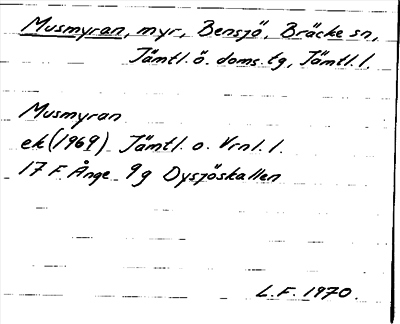 Musmyran, myr, Bensjö, Bräcke sn,
Jämtl. ö. doms. tg, Jämtl. l.
Musmyran
ek (1969) Jämtl. o. Vrnl. l.
17 F Ånge 9 g Dysjöskallen
L.F. 1970.